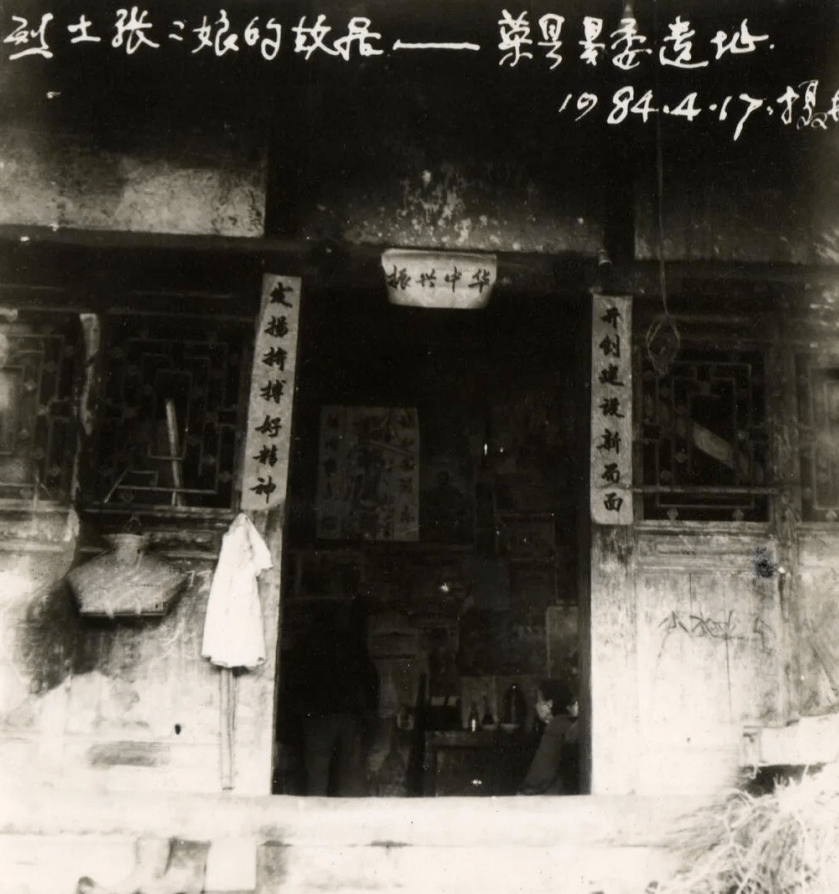 烈士张二娘的故居——荣县县委遗址.
1984.4.17.摄
振兴中华
发扬拼搏好精神
开创建设新局面